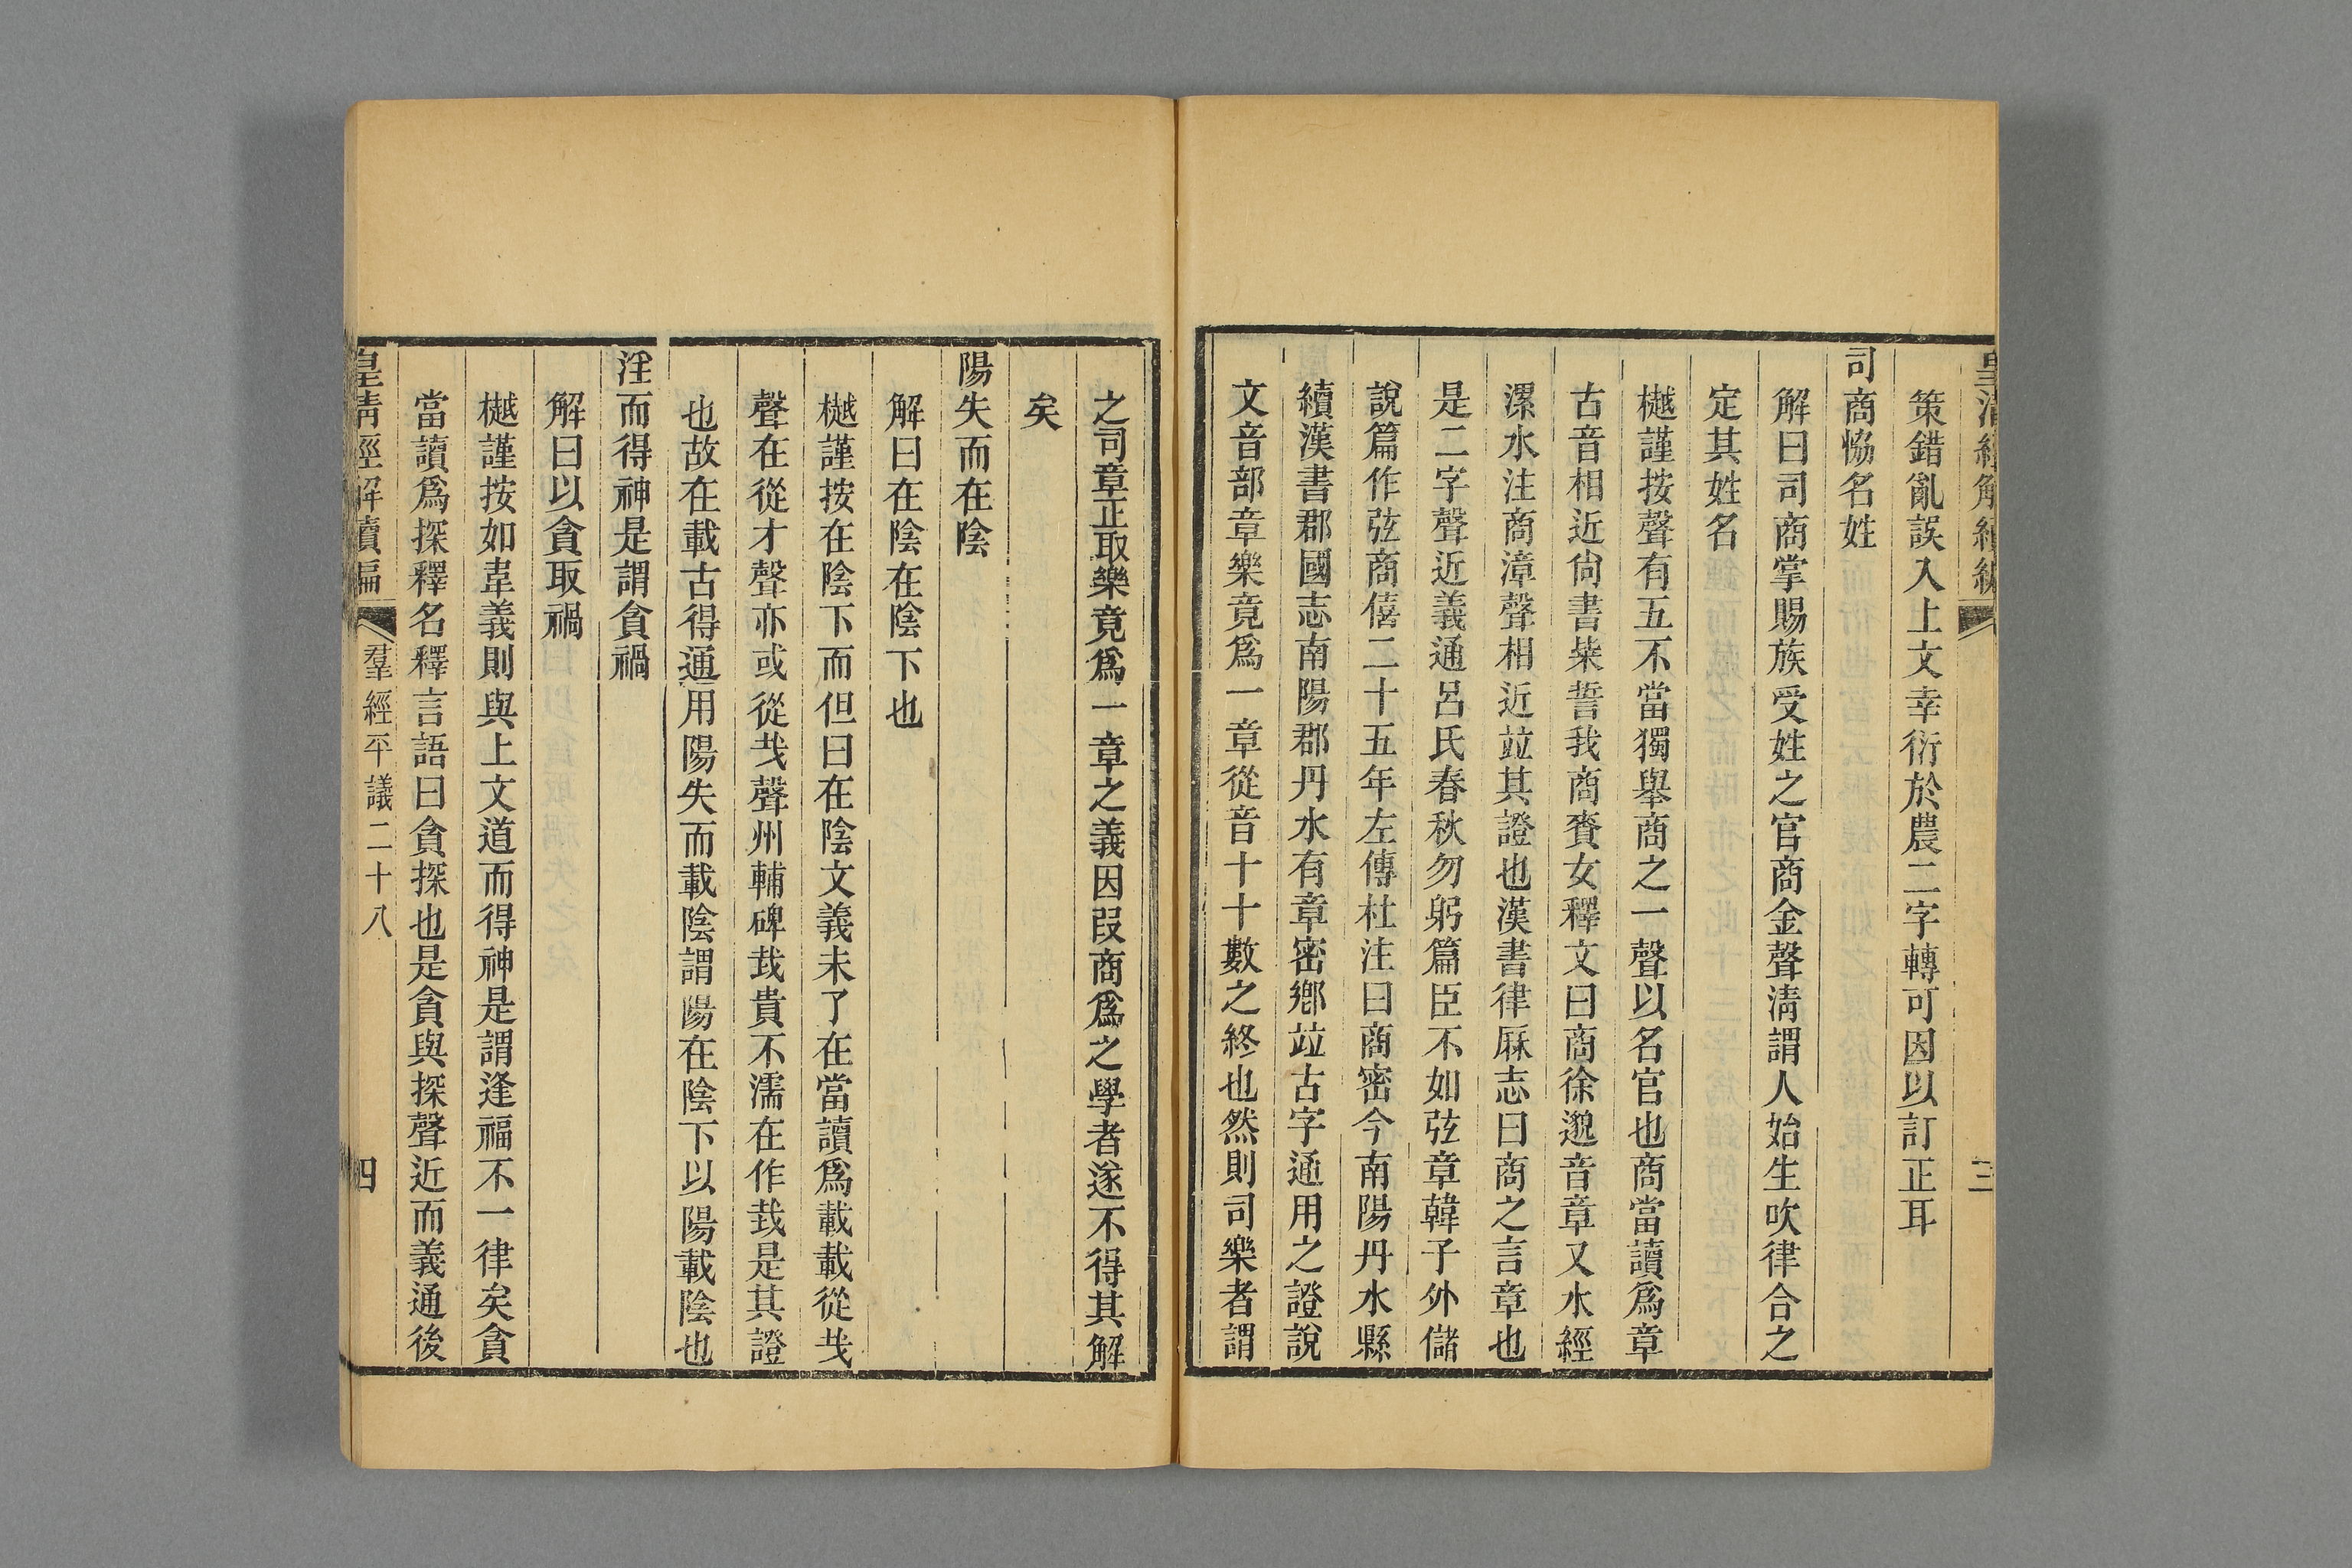 皇清經解續編
三
策錯亂誤入上文幸衍於農二字轉可因以訂正耳
司商恊名姓
解曰司商掌賜族受姓之官商金聲淸謂人始生吹律合之
定其姓名
樾謹按聲有五不當獨舉商之一聲以名官也商當讀爲章
古音相近尙書柴誓我商賚女釋文曰商徐邈音章又水經
漯水注商漳聲相近竝其證也漢書律厤志曰商之言章也
是二字聲近義通呂氏春秋勿躬篇臣不如弦章韓子外儲
說篇作弦商僖二十五年左傳杜注曰商密今南陽丹水縣
續漢書郡國志南陽郡丹水有章密鄕竝古字通用之證說
文音部章樂竟爲一章從音十十數之終也然則司樂者謂
之司章正取樂竟爲一章之義因叚商爲之學者遂不得其解
矣
陽失而在陰
解曰在陰在陰下也
樾謹按在陰下而但曰在陰文義未了在當讀爲載載從𢦏
聲在從才聲亦或從𢦏聲州輔碑㘽貴不濡在作㘽是其證
也故在載古得通用陽失而載陰謂陽在陰下以陽載陰也
淫而得神是謂貪禍
解曰以貪取禍
樾謹按如韋義則與上文道而得神是謂逢福不一律矣貪
當讀爲探釋名釋言語曰貪探也是貪與探聲近而義通後
皇淸經解續編
羣經平議二十八
四